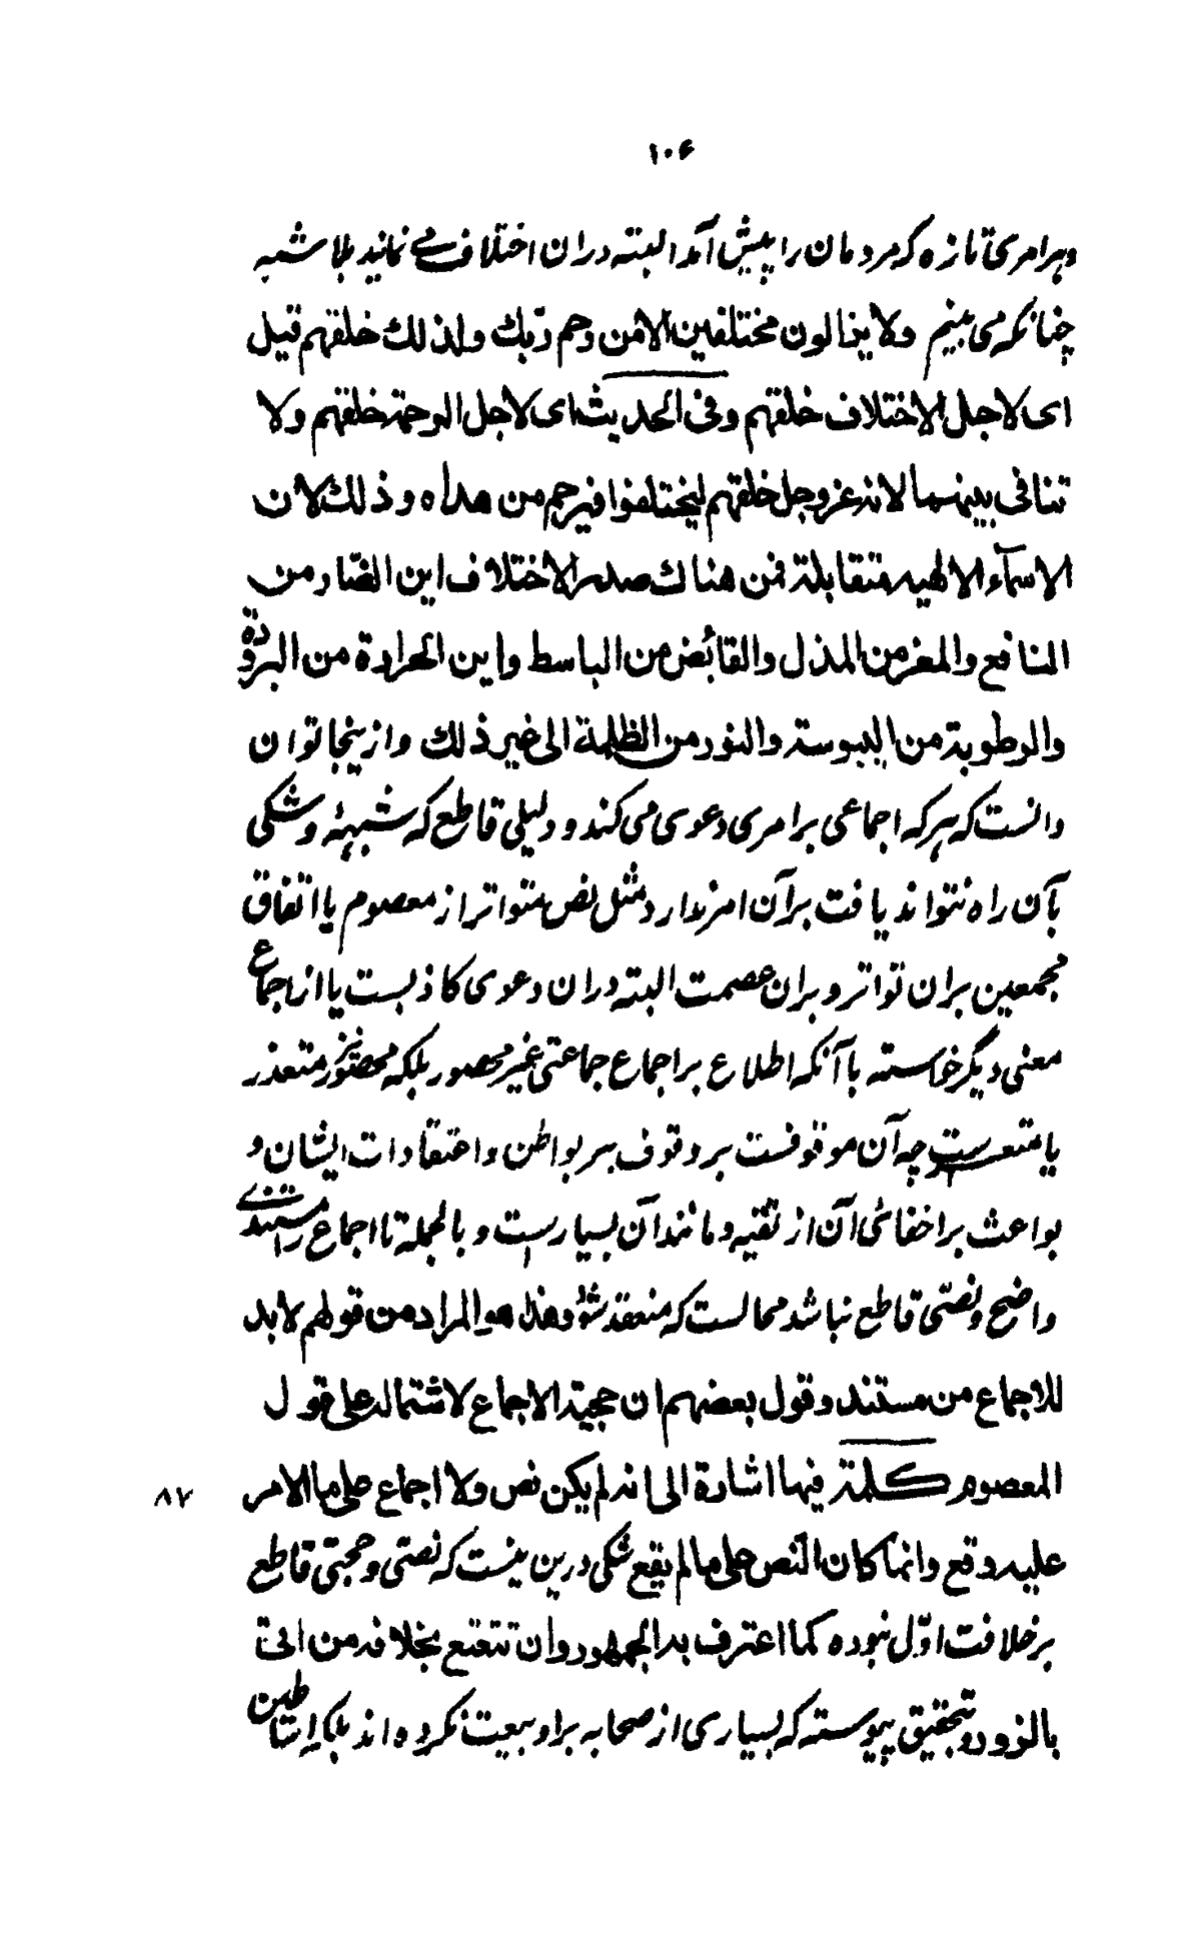 ۱۰۶
و هر امری تازه که مردمان را پیش آمد البته در ان اختلاف می نمایند بلا شبه
چنانکه می بینم ولا یزالون مختلفین الا من رحم ربك ولذلك خلقهم قیل
ای لاجل الاختلاف خلقهم وفی الحدیث ای لاجل الرحمة خلقهم ولا
تنافی بینهما لانه عزوجل خلقهم لیختلفوا فیرحم من هداه وذلك لان
الاسمآء الالهیه متقابلة فمن هناك صدر الاختلاف این الضار من
النافع والمعز من المذل والقابض من الباسط واین الحرارة من البرودة
والرطوبة من الیبوسة والنور من الظلمة الی غیر ذلك و از ینجا توان
دانست که هر که اجماعی بر امری دعوی می کند و دلیلی قاطع که شبههٔ و شکی
بآن راه نتواند یافت بر آن امر ندارد مثل نص متواتر از معصوم یا اتفاق
مجمعین بران تواتر و بران عصمت البته در ان دعوی کاذبست یا از اجماع
معنی دیگر خواسته با آنکه اطلاع بر اجماع جماعتی غیر محصور بلکه محصور نیز متعذر
یا متعسرست چه آن موقوفست بر وقوف بر بواطن و اعتقادات ایشان و
بواعث بر اخفائی آن از تقیه و مانند آن بسیارست و بالجمله تا اجماع را مستندی
واضح و نصّی قاطع نباشد محالست که منعقد شود وهذا هو المراد من قولهم لابد
للاجماع من مستند وقول بعضهم ان حجیة الاجماع لاشتماله علی قول
المعصوم کلمة فیها اشارة الی انه لم یکن نص ولا اجماع علی ما الامر
۸۷
علیه وقع وانما کان النص علی ما لم یقع شکی درین نیست که نصّی و حجتی قاطع
بر خلافت اوّل نبوده کما اعترف به الجمهور وان تتعتع بخلافه من اتی
بالزور و بتحقیق پیوسته که بسیاری از صحابه بر او بیعت نکرده اند بلکه اساطین